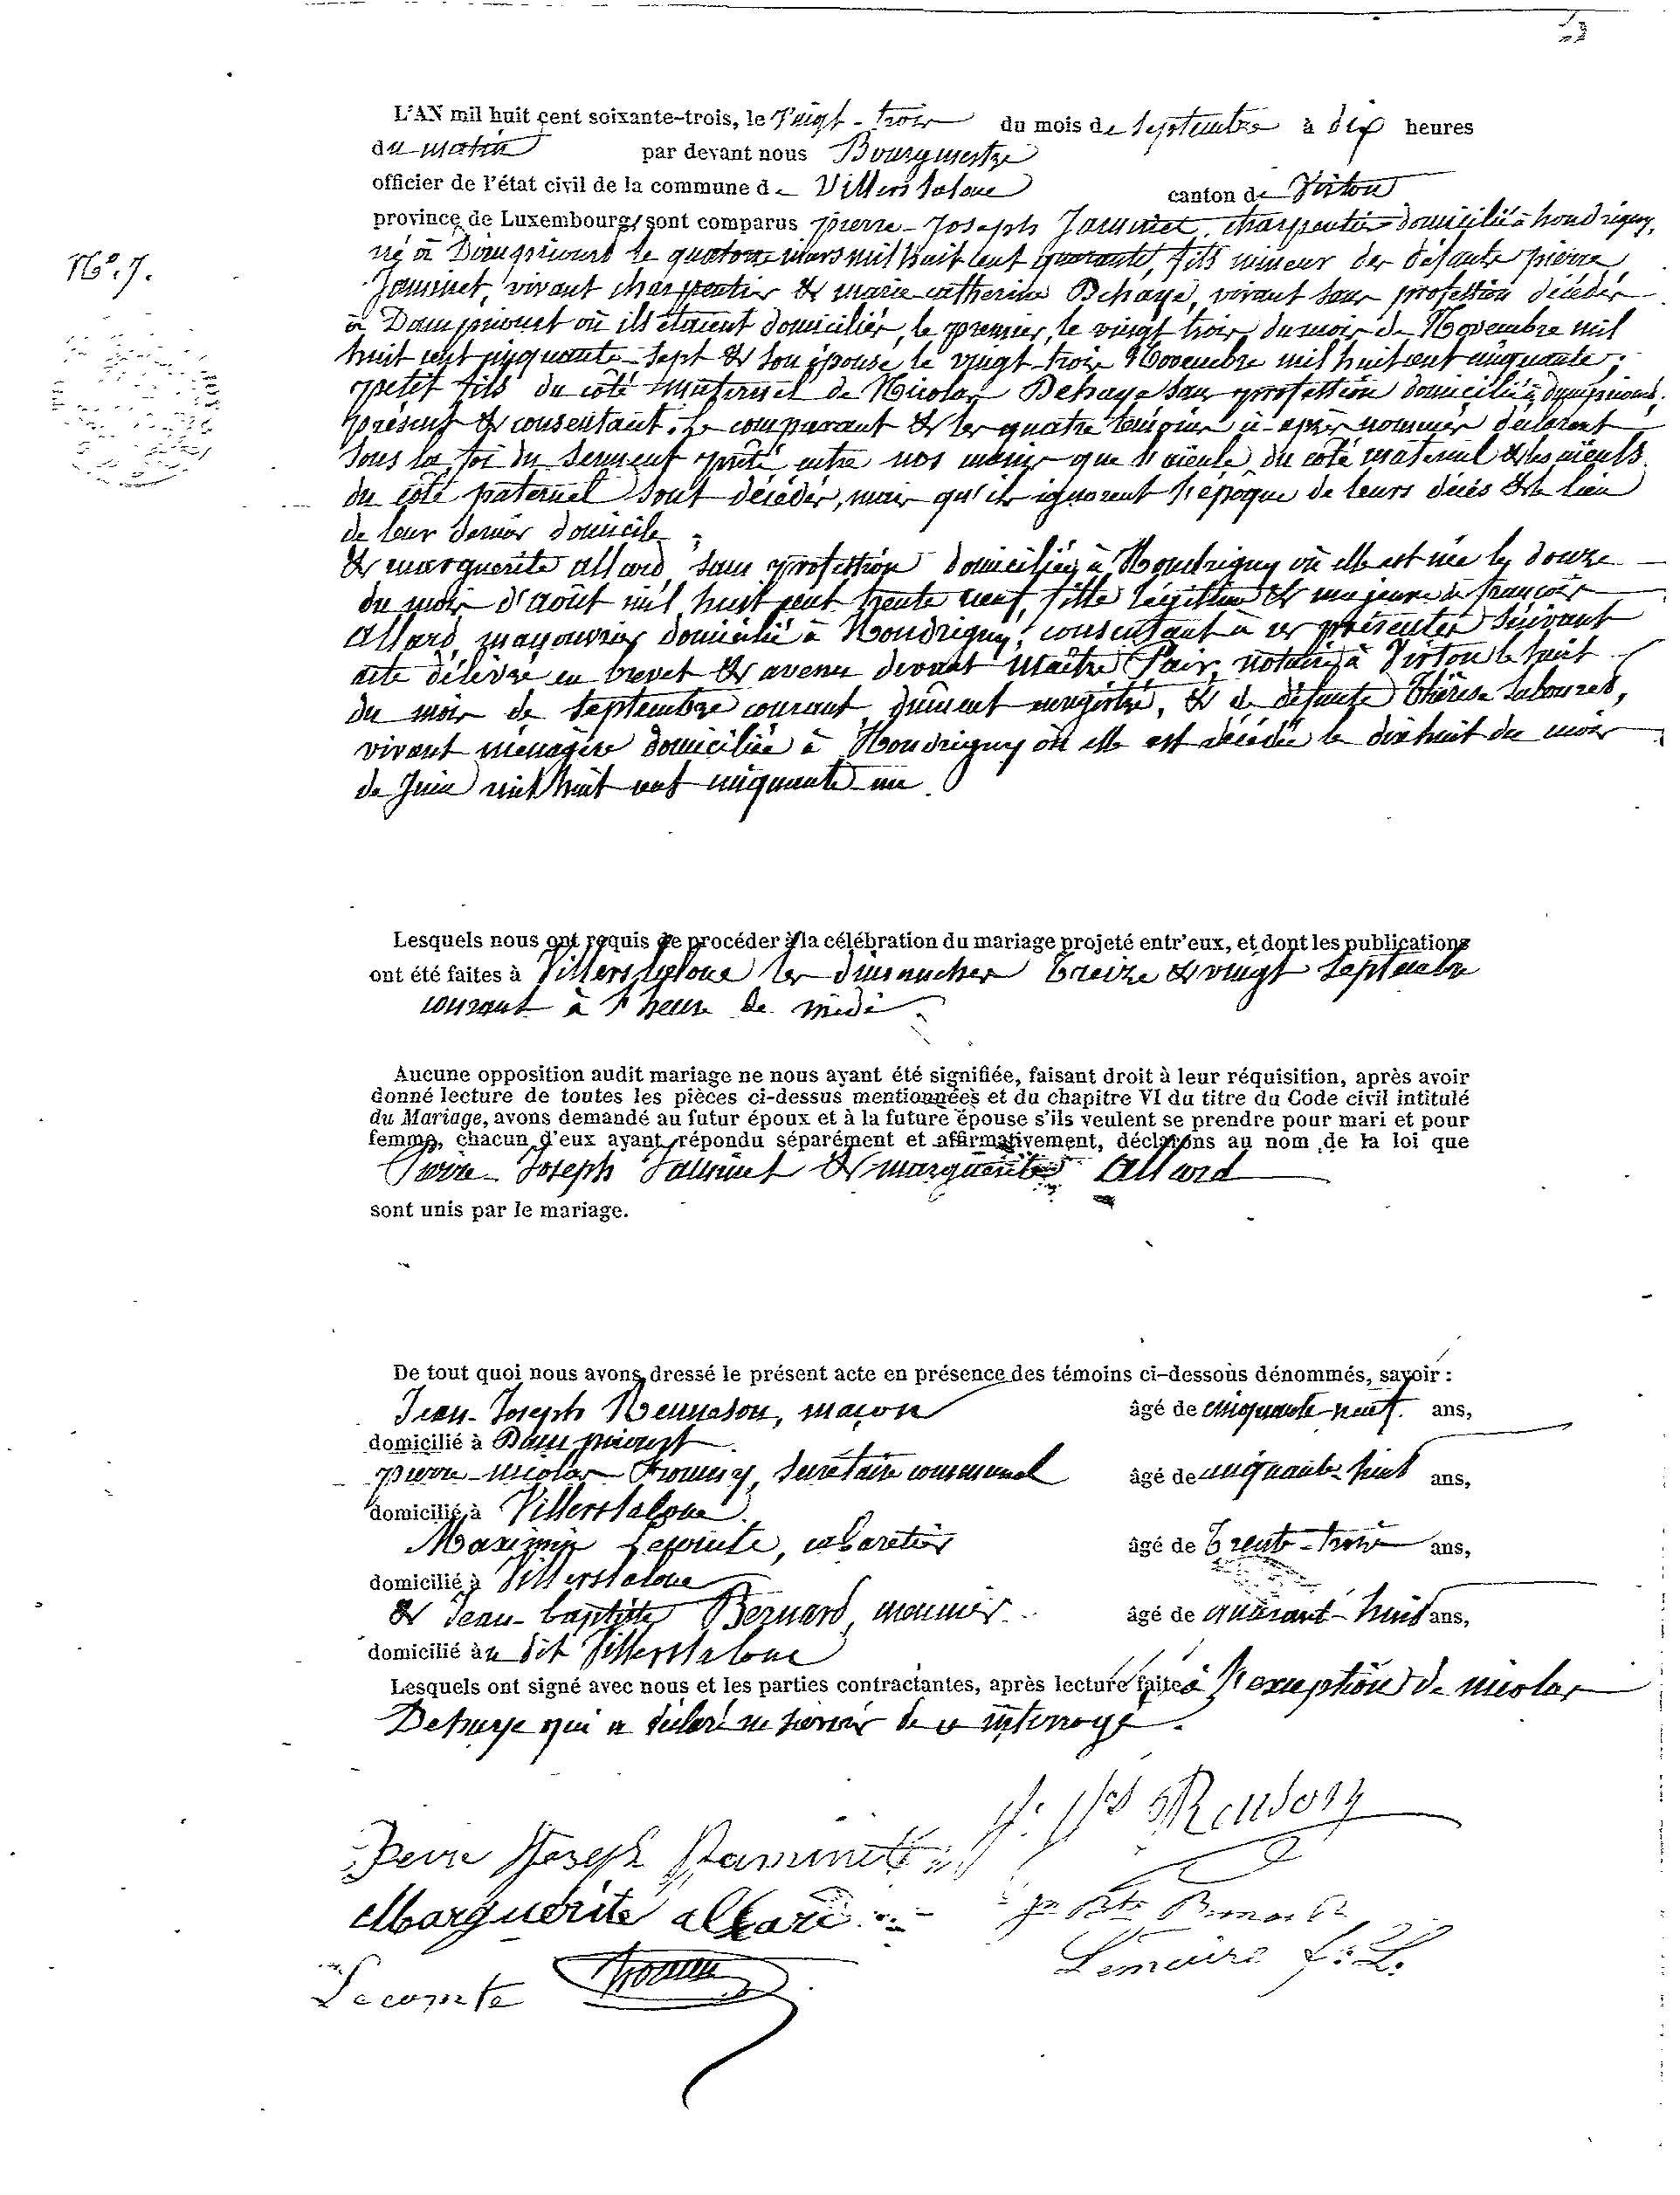 L'AN mil huit cent soixante-trois, le Vingt-trois du mois de Septembre à dix heures
du matin par devant nous Bourgmestre
officier de l'état civil de la commune de Villers la loue canton de Virton
province de Luxembourg, sont comparus pierre-Joseph Jaminet, charpentier domicilié à houdrigny,
né à Dampicourt le quatorze mars mil huit cent quarante, fils mineur des défunts pierre
Jaminet, vivant charpentier & marie catherine Dehaye, vivant sans profession décédés
à Dampicourt où ils étaient domiciliés, le premier, le vingt trois du mois de Novembre mil
huit cent cinquante-sept & son épouse le vingt-trois Novembre mil huit cent cinquante;
petit fils du côté maternel de Nicolas Dehaye sans profession domicilié à dampicourt,
présent & consentant. Le comparant & les quatre témoins ci-après nommés déclarent
sous la foi du serment prêté entre nos mains que l'aïeule du côté maternel & les aïeuls
du côté paternel sont décédés, mais qu'ils ignorent l'époque de leurs décès & le lieu
de leur dernier domicile
& marguerite allard, sans profession domiciliée à Houdrigny où elle est née le douze
du mois d'août mil huit cent trente neuf, fille légitime & majeure de françois
allard, manouvrier domicilié à Houdrigny, consentant à ces présentes suivant
acte délivré en brevet & avenu devant Maître notaire à Virton le huit
du mois de Septembre courant, dûment enregistré, & de défunte Thérèse Laboured,
vivant ménagère domiciliée à Houdrigny où elle est décédée le dix huit du mois
de Juin mil huit cent cinquante-un.
N°. 7.
Lesquels nous ont requis de procéder à la célébration du mariage projeté entr'eux, et dont les publications
ont été faites à Villers la loue les dimanches Treize & vingt Septembre
courant à l'heure de midi
Aucune opposition audit mariage ne nous ayant été signifiée, faisant droit à leur réquisition, après avoir
donné lecture de toutes les pièces ci-dessus mentionnées et du chapitre VI du titre du Code civil intitulé
du Mariage, avons demandé au futur époux et à la future épouse s'ils veulent se prendre pour mari et pour
femme, chacun d'eux ayant répondu séparément et affirmativement, déclarons au nom de la loi que
Pierre-Joseph Jaminet & marguerite Allard
sont unis par le mariage.
De tout quoi nous avons dressé le présent acte en présence des témoins ci-dessous dénommés, savoir :
Jean-Joseph Renneson, maçon âgé de cinquante-neuf ans,
domicilié à Dampicourt
pierre-nicolas Froumy, Secrétaire communal âgé de cinquante-huit ans,
domicilié à Villers la loue
Maximin Lecomte, cabaretier âgé de Trente-trois ans,
domicilié à Villers la loue
& Jean-baptiste Bernard, meunier âgé de quarante-huit ans,
domicilié au dit Villers la loue
Lesquels ont signé avec nous et les parties contractantes, après lecture faite à l'exception de nicolas
Dehaye qui a déclaré ne savoir de ce interrogé.
Pierre Joseph Jaminet
Marguerite allard
Jn Bte Bernard
Lemaire f. L.
Lecomte